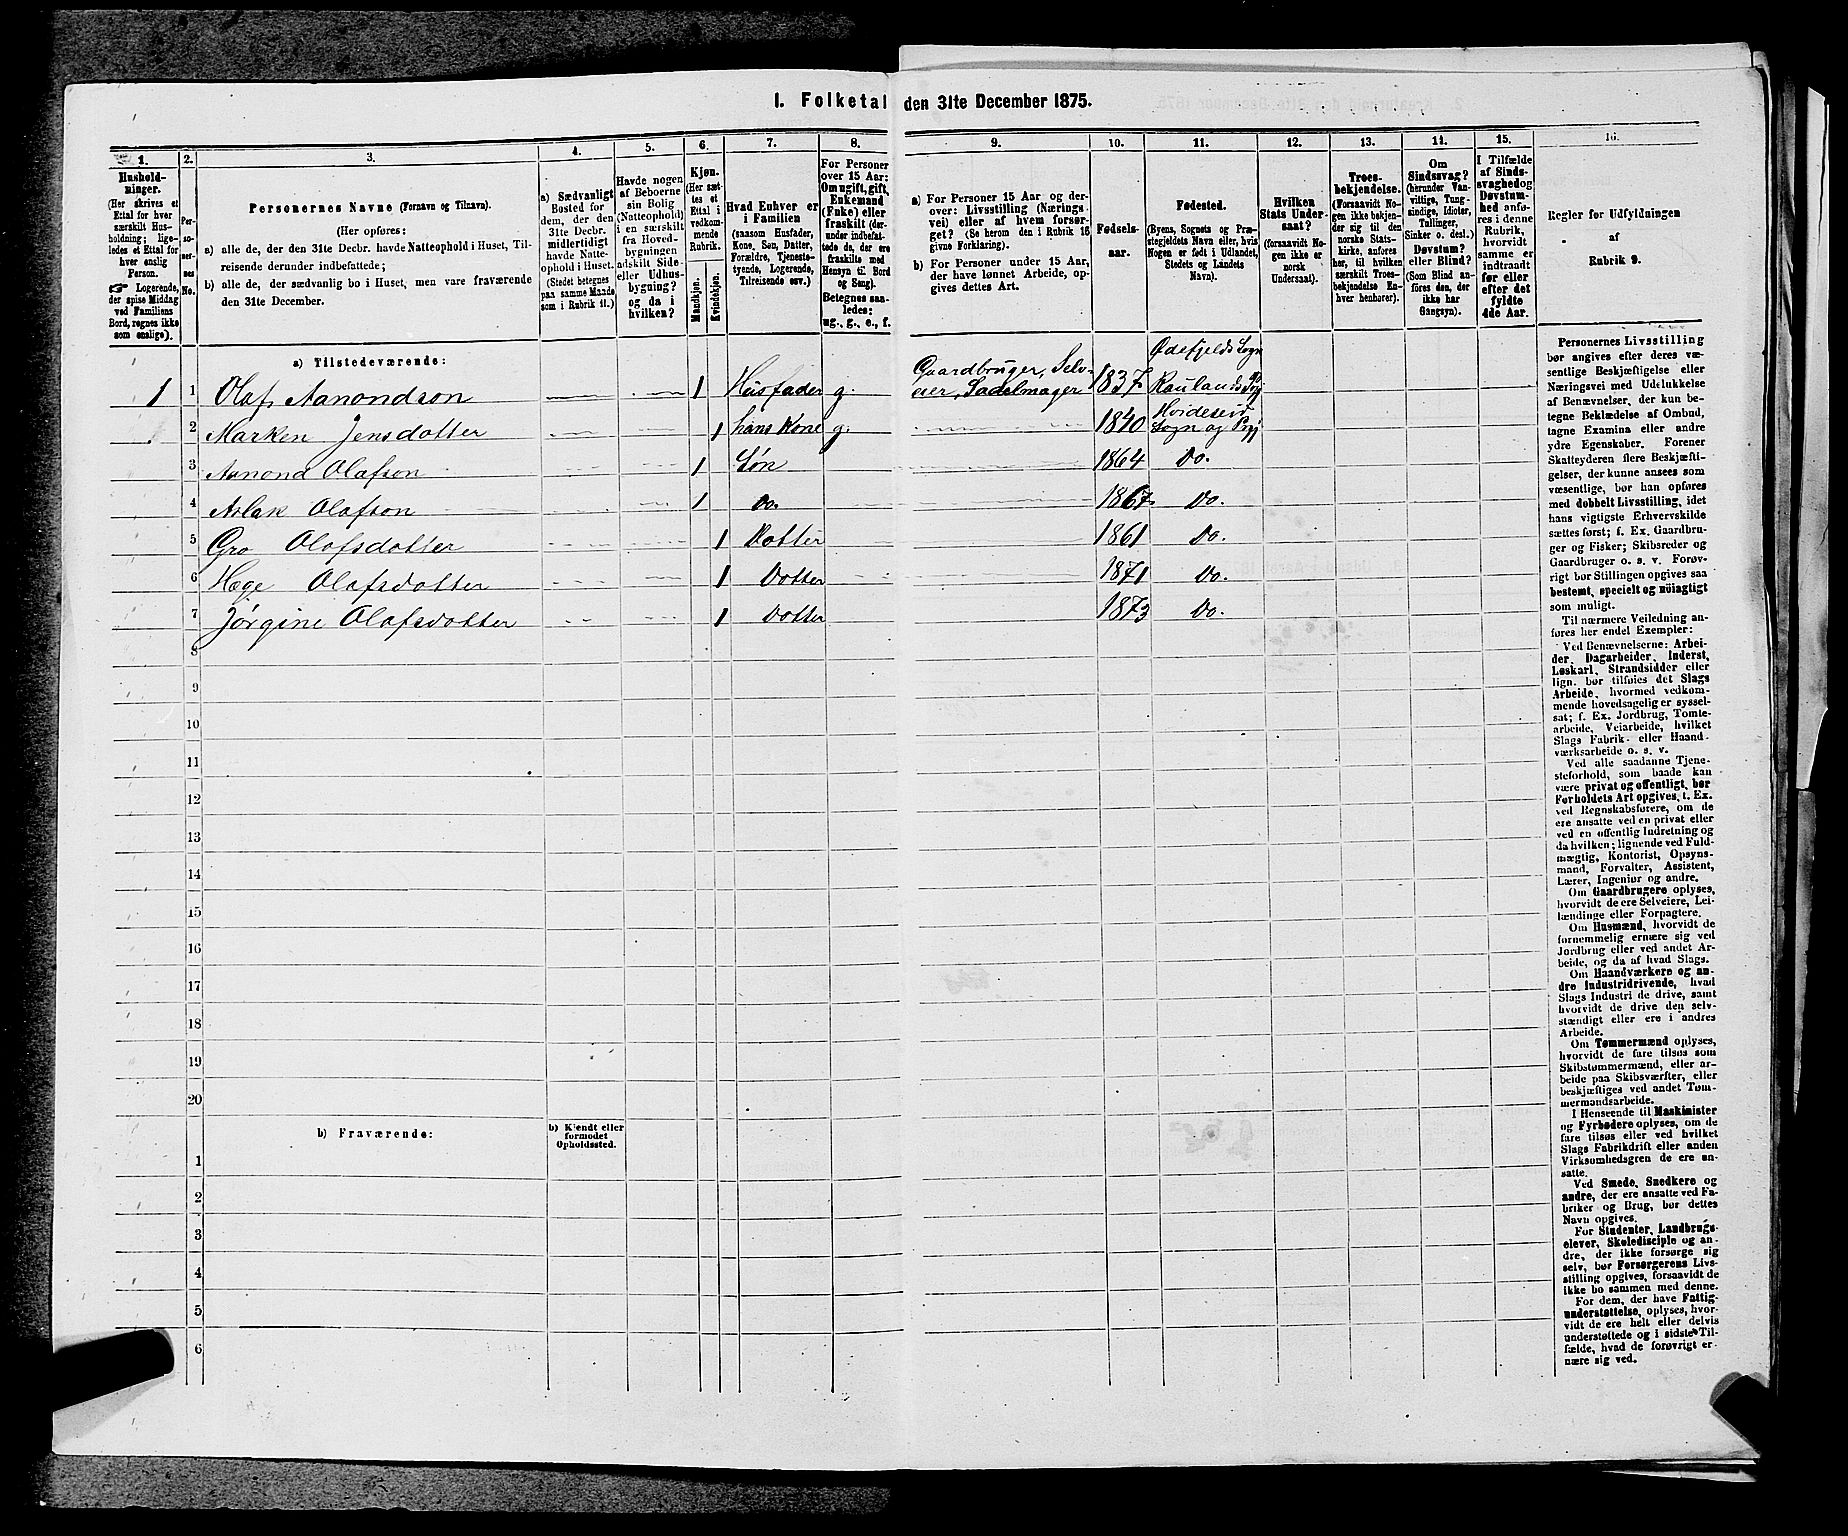 I. Folketal den 31te December 1875.
1. 2. 3. 4. 5. 6. 7. 8. 9. 10. 11. 12. 13. 14. 15. 16.
Hushold-
ninger.
(Her skrives et
Ettal for hver
særskilt Hus-
holdning; lige-
ledes et Ettal for
hver enslig
Person.
Logerende,
der spise Middag
ved Familiens
Bord, regnes ikke
som enslige).
Per-
so-
ner-
nes
No.
Personernes Navne (Fornavn og Tilnavn).
(Her opføres:
a) alle de, der den 31te Decbr. havde Natteophold i Huset, Til-
reisende derunder indbefattede;
b) alle de, der sædvanlig bo i Huset, men vare fraværende
den 31te December.
a) Sædvanligt
Bosted for
dem, der den
31te Decbr.
midlertidigt
havde Natte-
ophold i Huset.
(Stedet betegnes
paa samme Maade
som i Rubrik 11.)
Havde nogen
af Beboerne
sin Bolig
(Natteophold)
i en særskilt
fra Hoved-
bygningen
adskilt Side-
eller Udhus-
bygning?
og da i
hvilken?
Kjøn.
(Her sæt-
tes et
Ettal i
vedkom-
mende
Rubrik.
Mandkjøn.
Kvindekjøn.
Hvad Enhver er
i Familien
(saasom Husfader,
Kone, Søn, Datter,
Forældre, Tjeneste-
tyende, Logerende,
Tilreisende osv.)
For Personer
over 15 Aar:
Om ugift, gift,
Enkemand
(Enke) eller
fraskilt (der-
under indbefat-
tede de, der ere
fraskilte med
Hensyn til Bord
og Seng).
Betegnes saa-
ledes:
ug., g., e., f.
a) For Personer 15 Aar og der-
over: Livsstilling (Nærings-
vei) eller af hvem forsør-
get? (Se herom den i Rubrik 16
givne Forklaring).
b) For Personer under 15 Aar,
der have lønnet Arbeide, op-
gives dettes Art.
Fødsels-
aar.
Fødested.
(Byens, Sognets og Præ-
stegjeldets Navn eller, hvis
Nogen er født i Udlandet,
Stedets og Landets
Navn).
Hvilken
Stats Under-
saat?
(forsaavidt No-
gen ikke er
norsk
Undersaat).
Troes-
bekjendelse.
(Forsaavidt No-
gen ikke bekjen-
der sig til den
norske Stats-
kirke, anføres
her, til hvilken
særskilt Troes-
bekjendelse En-
hver henhører).
Om
Sindssvag?
(herunder Van-
vittige, Tung-
sindige, Idioter,
Tullinger,
Sinker o. desl.)
Døvstum?
eller Blind?
(Som Blind an-
føres den, der
ikke har
Gangsyn).
I Tilfælde
af Sinds-
svaghed og
Døvstum-
hed anfø-
res i denne
Rubrik,
hvorvidt
samme er
indtraadt
før eller
efter det
fyldte
4de Aar.
Regler for Udfyldningen
af
Rubrik 9.
a) Tilstedeværende:
1 1 Olaf Aanondson 1 Husfader g. Gaardbruger, Selv-
eier, Sadelmager 1837 Ødefjelds Sogn
Raulands Pgj
2 Marken Jensdotter 1 hans Kone g. 1840 Hvideseid
Sogn og Pgj
3 Aanond Olafson 1 Søn 1864 Do.
4 Aslak Olafson 1 Do. 1867 Do.
5 Gro Olafsdotter 1 Dotter 1861 Do.
6 Hæge Olafsdotter 1 Dotter 1871 Do.
7 Jørgine Olafsdotter 1 Dotter 1873 Do.
8
9
10
11
12
13
14
15
16
17
18
19
20
b) Fraværende:
b) Kjendt eller
formodet
Opholdssted.
1
2
3
4
5
6
Personernes Livsstilling
bør angives efter deres væ-
sentlige Beskjæftigelse eller
Næringsvei med Udelukkelse
af Benævnelser, der kun be-
tegne Beklædelse af Ombud,
tagne Examina eller andre
ydre Egenskaber. Forener
Skatteyderen flere Beskjæfti-
gelser, der kunne ansees som
væsentlige, bør han opføres
med dobbelt Livsstilling, idet
hans vigtigste Erhvervskilde
sættes først; f. Ex. Gaardbru-
ger og Fisker; Skibsreder og
Gaardbruger o. s. v. Forøv-
rigt bør Stillingen opgives saa
bestemt, specielt og nøiagtigt
som muligt.
Til nærmere Veiledning an-
føres her endel Exempler:
Ved Benævnelserne: Arbei-
der, Dagarbeider, Inderst,
Løskarl, Strandsidder eller
lign. bør tilføies det Slags
Arbeide, hvormed vedkom-
mende hovedsagelig er syssel-
sat; f. Ex. Jordbrug, Tomte-
arbeide, Veiarbeide, hvilket
Slags Fabrik- eller Haand-
værksarbeide o. s. v.
Ved alle saadanne Tjene-
steforhold, som baade kan
være privat og offentligt, bør
Forholdets Art opgives, f. Ex.
ved Regnskabsførere, om de
ere ansatte ved en privat eller
ved en offentlig Indretning og
da hvilken; lignende ved Fuld-
mægtig, Kontorist, Opsyns-
mand, Forvalter, Assistent,
Lærer, Ingeniør og andre.
Om Gaardbrugere oplyses,
hvorvidt de ere Selveiere, Lei-
lændinge eller Forpagtere.
Om Husmænd, hvorvidt de
fornemmelig ernære sig ved
Jordbrug eller ved andet Ar-
beide, og da af hvad Slags.
Om Haandværkere og an-
dre Industridrivende, hvad
Slags Industri de drive, samt
hvorvidt de drive den selv-
stændigt eller ere i andres
Arbeide.
Om Tømmermænd oplyses,
hvorvidt de fare tilsøs som
Skibstømmermænd, eller ar-
beide paa Skibsværfter, eller
beskjæftiges ved andet Tøm-
mermandsarbeide.
I Henseende til Maskinister
og Fyrbødere oplyses, om de
fare tilsøs eller ved hvilket
Slags Fabrikdrift eller anden
Virksomhedsgren de ere an-
satte.
Ved Smede, Snedkere og
andre, der ere ansatte ved Fa-
briker og Brug, bør dettes
Navn opgives.
For Studenter, Landbrugs-
elever, Skoledisciple og an-
dre, der ikke forsørge sig
selv, bør Forsørgerens Livs-
stilling opgives, forsaavidt de
ikke bo sammen med denne.
For dem, der have Fattig-
understøttelse, oplyses, hvor-
vidt de ere helt eller delvis
understøttede og i sidste Til-
fælde, hvad de forøvrigt er-
nære sig ved.